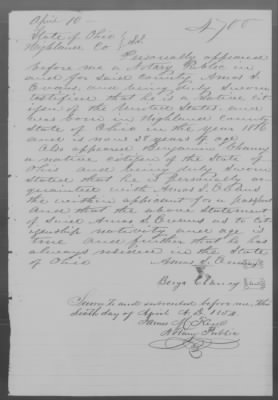 April 10
4700
State of Ohio
Highland Co } Sct.
Personally appeared
before me a Notary Public in
and for said County Amos S.
Evans and being duly sworn
testifies that he is a Native cit
izen of the United States and
was born in Highland County
State of Ohio in the year 1816
and is now 38 years of age
Also appeared Benjamin Clancy
a native citizen of the State of
Ohio and being duly sworn
states that he is personally ac
quainted with Amos S. Evans
the within applicant for a passport
and that the above statement
of said Amos S. Evans as to cit
izenship nativity and age is
true and further that he has
always resided in the State
of Ohio
Amos S. Evans
Benja Clancy
Sworn to and subscribed before me this
sixth day of April A.D. 1854
James M
Notary Public